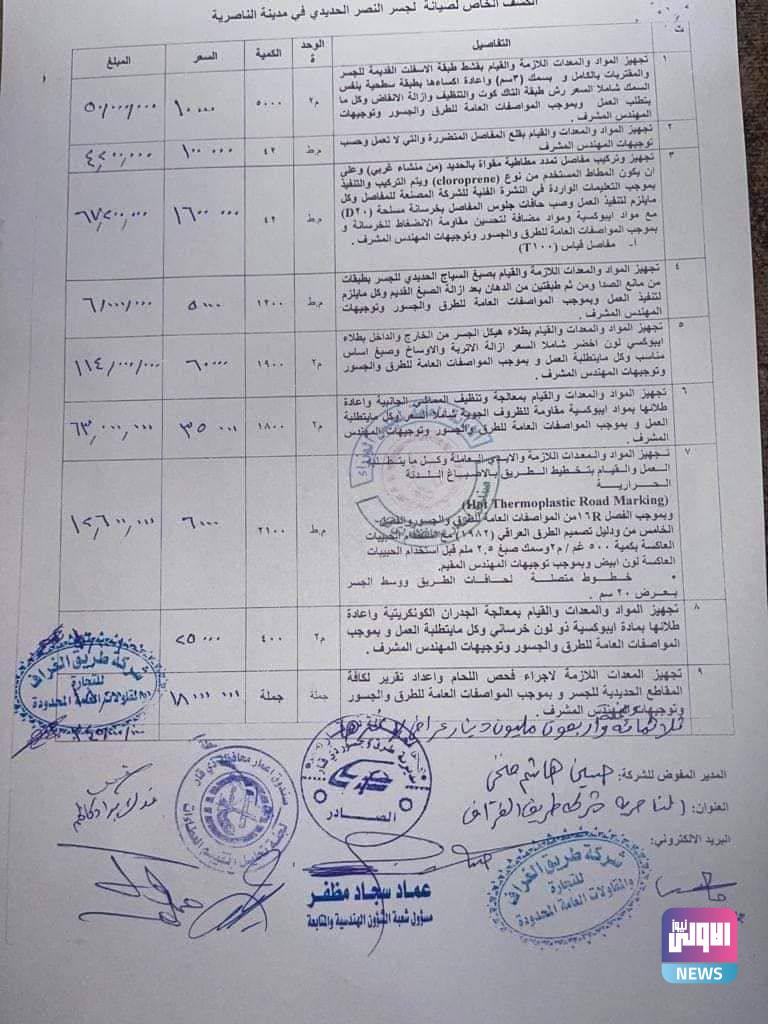 الكشف الخاص لصيانة لجسر النصر الحديدي في مدينة الناصرية
ت التفاصيل الوحدة الكمية السعر المبلغ
١ تجهيز المواد والمعدات اللازمة والقيام بقشط طبقة الاسفلت القديمة للجسر
والمقتربات بالكامل و بسمك (٣سم) واعادة اكساءها بطبقة سطحية بنفس
السمك شاملا السعر رش طبقة التاك كوت والتنظيف وازالة الانقاض وكل ما
يتطلب العمل وبموجب المواصفات العامة للطرق والجسور وتوجيهات
المهندس المشرف .
م٢ ٥٠٠٠ ١٠٠٠٠ ٥٠,٠٠٠,٠٠٠
٢ تجهيز المواد والمعدات والقيام بقلع المفاصل المتضررة والتي لا تعمل وحسب
توجيهات المهندس المشرف
م.ط ٤٢ ١٠٠٠٠٠ ٤,٢٠٠,٠٠٠
٣ تجهيز وتركيب مفاصل تمدد مطاطية مقواة بالحديد (من منشاء غربي) وعلى
ان يكون المطاط المستخدم من نوع (cloroprene) ويتم التركيب والتنفيذ
بموجب التعليمات الواردة في النشرة الفنية للشركة المصنعة للمفاصل وكل
مايلزم لتنفيذ العمل وصب حافات جلوس المفاصل بخرسانة مسلحة (D٢٠)
مع مواد ايبوكسية ومواد مضافة لتحسين مقاومة الانضغاط للخرسانة و
بموجب المواصفات العامة للطرق والجسور وتوجيهات المهندس المشرف .
أ- مفاصل قياس (T١٠٠)
م.ط ٤٢ ١٦٠٠٠٠٠ ٦٧,٢٠٠,٠٠٠
٤ تجهيز المواد والمعدات اللازمة والقيام بصبغ السياج الحديدي للجسر بطبقات
من مانع الصدا ومن ثم طبقتين من الدهان بعد ازالة الصبغ القديم وكل مايلزم
لتنفيذ العمل وبموجب المواصفات العامة للطرق والجسور وتوجيهات
المهندس المشرف .
م.ط ١٢٠٠ ٥٠٠٠ ٦,٠٠٠,٠٠٠
٥ تجهيز المواد والمعدات والقيام بطلاء هيكل الجسر من الخارج والداخل بطلاء
ايبوكسي لون اخضر شاملا السعر ازالة الاتربة والاوساخ وصبغ اساس
مناسب وكل مايتطلبة العمل و بموجب المواصفات العامة للطرق والجسور
وتوجيهات المهندس المشرف .
م٢ ١٩٠٠ ٦٠٠٠٠ ١١٤,٠٠٠,٠٠٠
٦ تجهيز المواد والمعدات والقيام بمعالجة وتنظيف المماشي الجانبية واعادة
طلائها بمواد ايبوكسية مقاومة للظروف الجوية شاملا السعر وكل مايتطلبة
العمل و بموجب المواصفات العامة للطرق والجسور وتوجيهات المهندس
المشرف .
م٢ ١٨٠٠ ٣٥٠٠٠ ٦٣,٠٠٠,٠٠٠
٧ تجهيز المواد والمعدات اللازمة والايدي العاملة وكل ما يتطلبه
العمل والقيام بتخطيط الطريق بالاصباغ اللدنة
الحرارية
(Hot Thermoplastic Road Marking)
وبموجب الفصل R١٦ من المواصفات العامة للطرق والجسور والفصل
الخامس من ودليل تصميم الطرق العراقي (١٩٨٢) مع استخدام الحبيبات
العاكسة بكمية ٥٠٠ غم / م٢ وسمك صبغ ٢.٥ ملم قبل استخدام الحبيبات
العاكسة لون ابيض وبموجب توجيهات المهندس المقيم.
• خطوط متصلة لحافات الطريق ووسط الجسر
بعرض ٢٠ سم .
م.ط ٢١٠٠ ٦٠٠٠ ١٢,٦٠٠,٠٠٠
٨ تجهيز المواد والمعدات والقيام بمعالجة الجدران الكونكريتية واعادة
طلائها بمادة ايبوكسية ذو لون خرساني وكل مايتطلبة العمل و بموجب
المواصفات العامة للطرق والجسور وتوجيهات المهندس المشرف .
م٢ ٤٠٠ ٢٥٠٠٠
٩ تجهيز المعدات اللازمة لاجراء فحص اللحام واعداد تقرير لكافة
المقاطع الحديدية للجسر و بموجب المواصفات العامة للطرق والجسور
وتوجيهات المهندس المشرف .
جملة جملة
ثلاثمائة واربعون مليون دينار عراقي لا غيرها
المدير المفوض للشركة: حسين هاشم
العنوان: الناصرية شركة طريق الغراف
البريد الالكتروني:
شركة طريق الغراف
للتجارة
والمقاولات العامة المحدودة
صندوق اعمار محافظة ذي قار
مديرية طرق وجسور ذي قار
الصادر
عماد سجاد مظفر
مسؤول شعبة الشؤون الهندسية والمتابعة
شركة طريق الغراف
للتجارة
والمقاولات العامة المحدودة
الاولى نيوز
NEWS